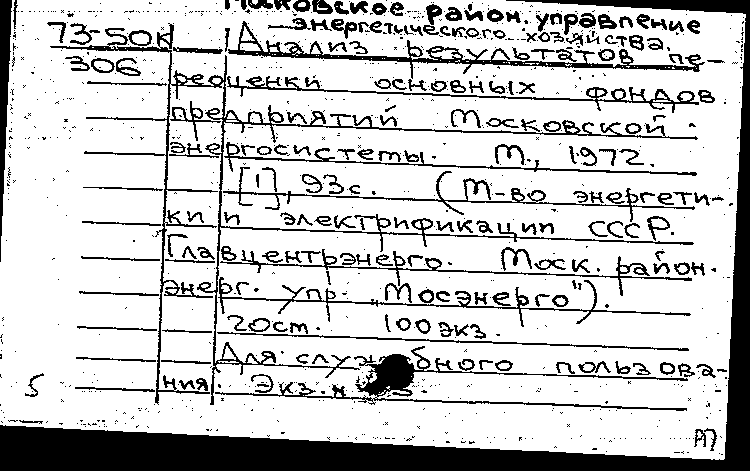 Московское район. управление
энергетического хозяйства.
73-50к Анализ результатов пе-
306 реоценки основных фондов
предприятий Московской
энергосистемы. М., 1972.
[1], 93с. (М-во энергети-
ки и электрификации СССР.
Главцентрэнерго. Моск. район.
энерг. упр. „Мосэнерго").
20см. 100 экз.
Для служебного пользова-
5 ния. Экз.